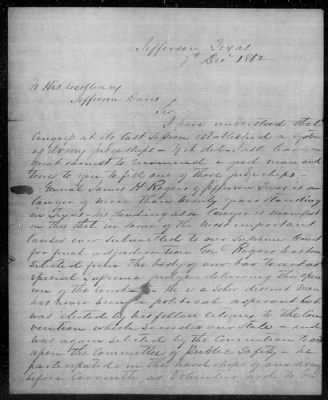 Jefferson Texas
7th Decr 1862
To His Excellency
Jefferson Davis
Sir
I have understood that
Congress at its last Session established a system
of
great earnest to recommend a good man and
to you to fill one of those
General James H Rogers of Jefferson Texas is a
lawyer of more than twenty years standing
in Texas - his standing as a lawyer is manifest
in this that in some of the most important
causes ever submitted to our Supreme Court
for final adjudication Gen Rogers has been
selected from the body of our bar to act as
special Supreme Judge delivering the opin-
ion of the Court - He is a sober discreet man
has never been a political aspirant but
was elected by his fellow citizens to the Con-
vention which Seceded our State - and
was again selected by the Convention to act
upon the Committee of Public Safety - he
participated in the hardships of our army
before Corinth as Volunteer aid to Genl